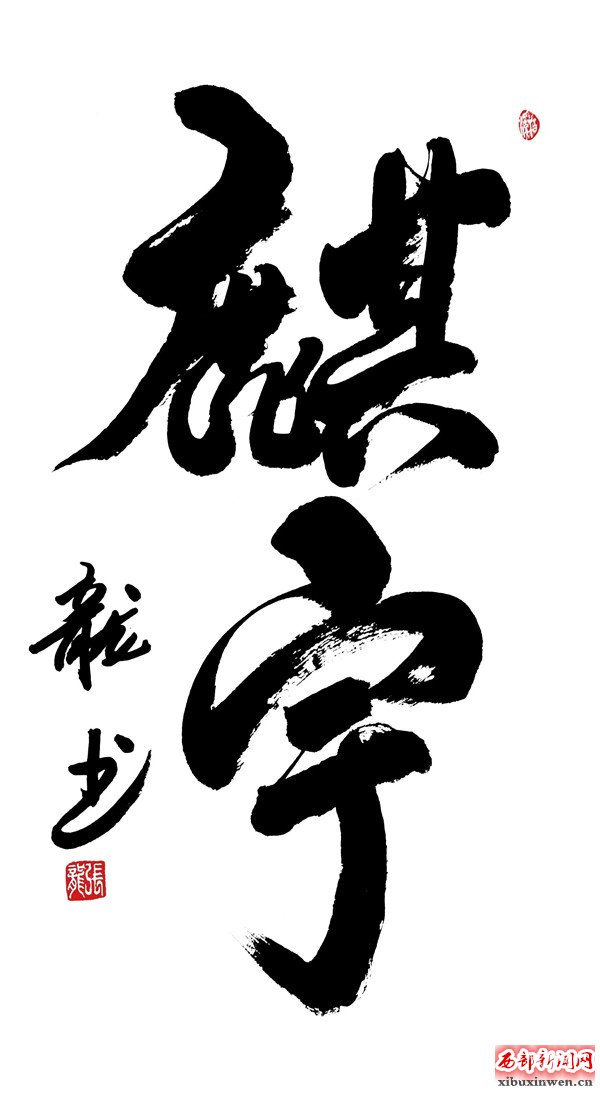 麒宇
龍书
張龍
西部新闻网
xibuxinwen.cn